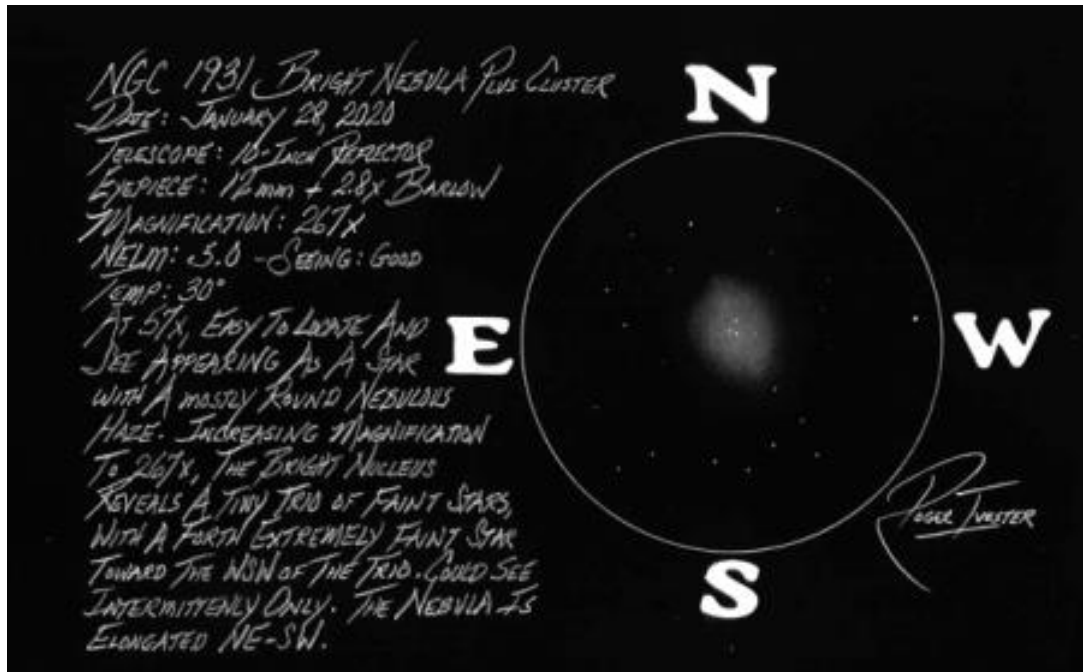 NGC 1931 BRIGHT NEBULA PLUS CLUSTER
DATE: JANUARY 28, 2020
TELESCOPE: 10-INCH REFLECTOR
EYEPIECE: 12mm + 2.8X BARLOW
MAGNIFICATION: 267X
NELM: 5.0 - SEEING: GOOD
TEMP: 30°
AT 57X, EASY TO LOCATE AND
SEE APPEARING AS A STAR
WITH A MOSTLY ROUND NEBULOUS
HAZE. INCREASING MAGNIFICATION
TO 267X, THE BRIGHT NUCLEUS
REVEALS A TINY TRIO OF FAINT STARS,
WITH A FORTH EXTREMELY FAINT STAR
TOWARD THE WSW OF THE TRIO. COULD SEE
INTERMITTENLY ONLY. THE NEBULA IS
ELONGATED NE-SW.
N
E
W
S
ROGER IVESTER